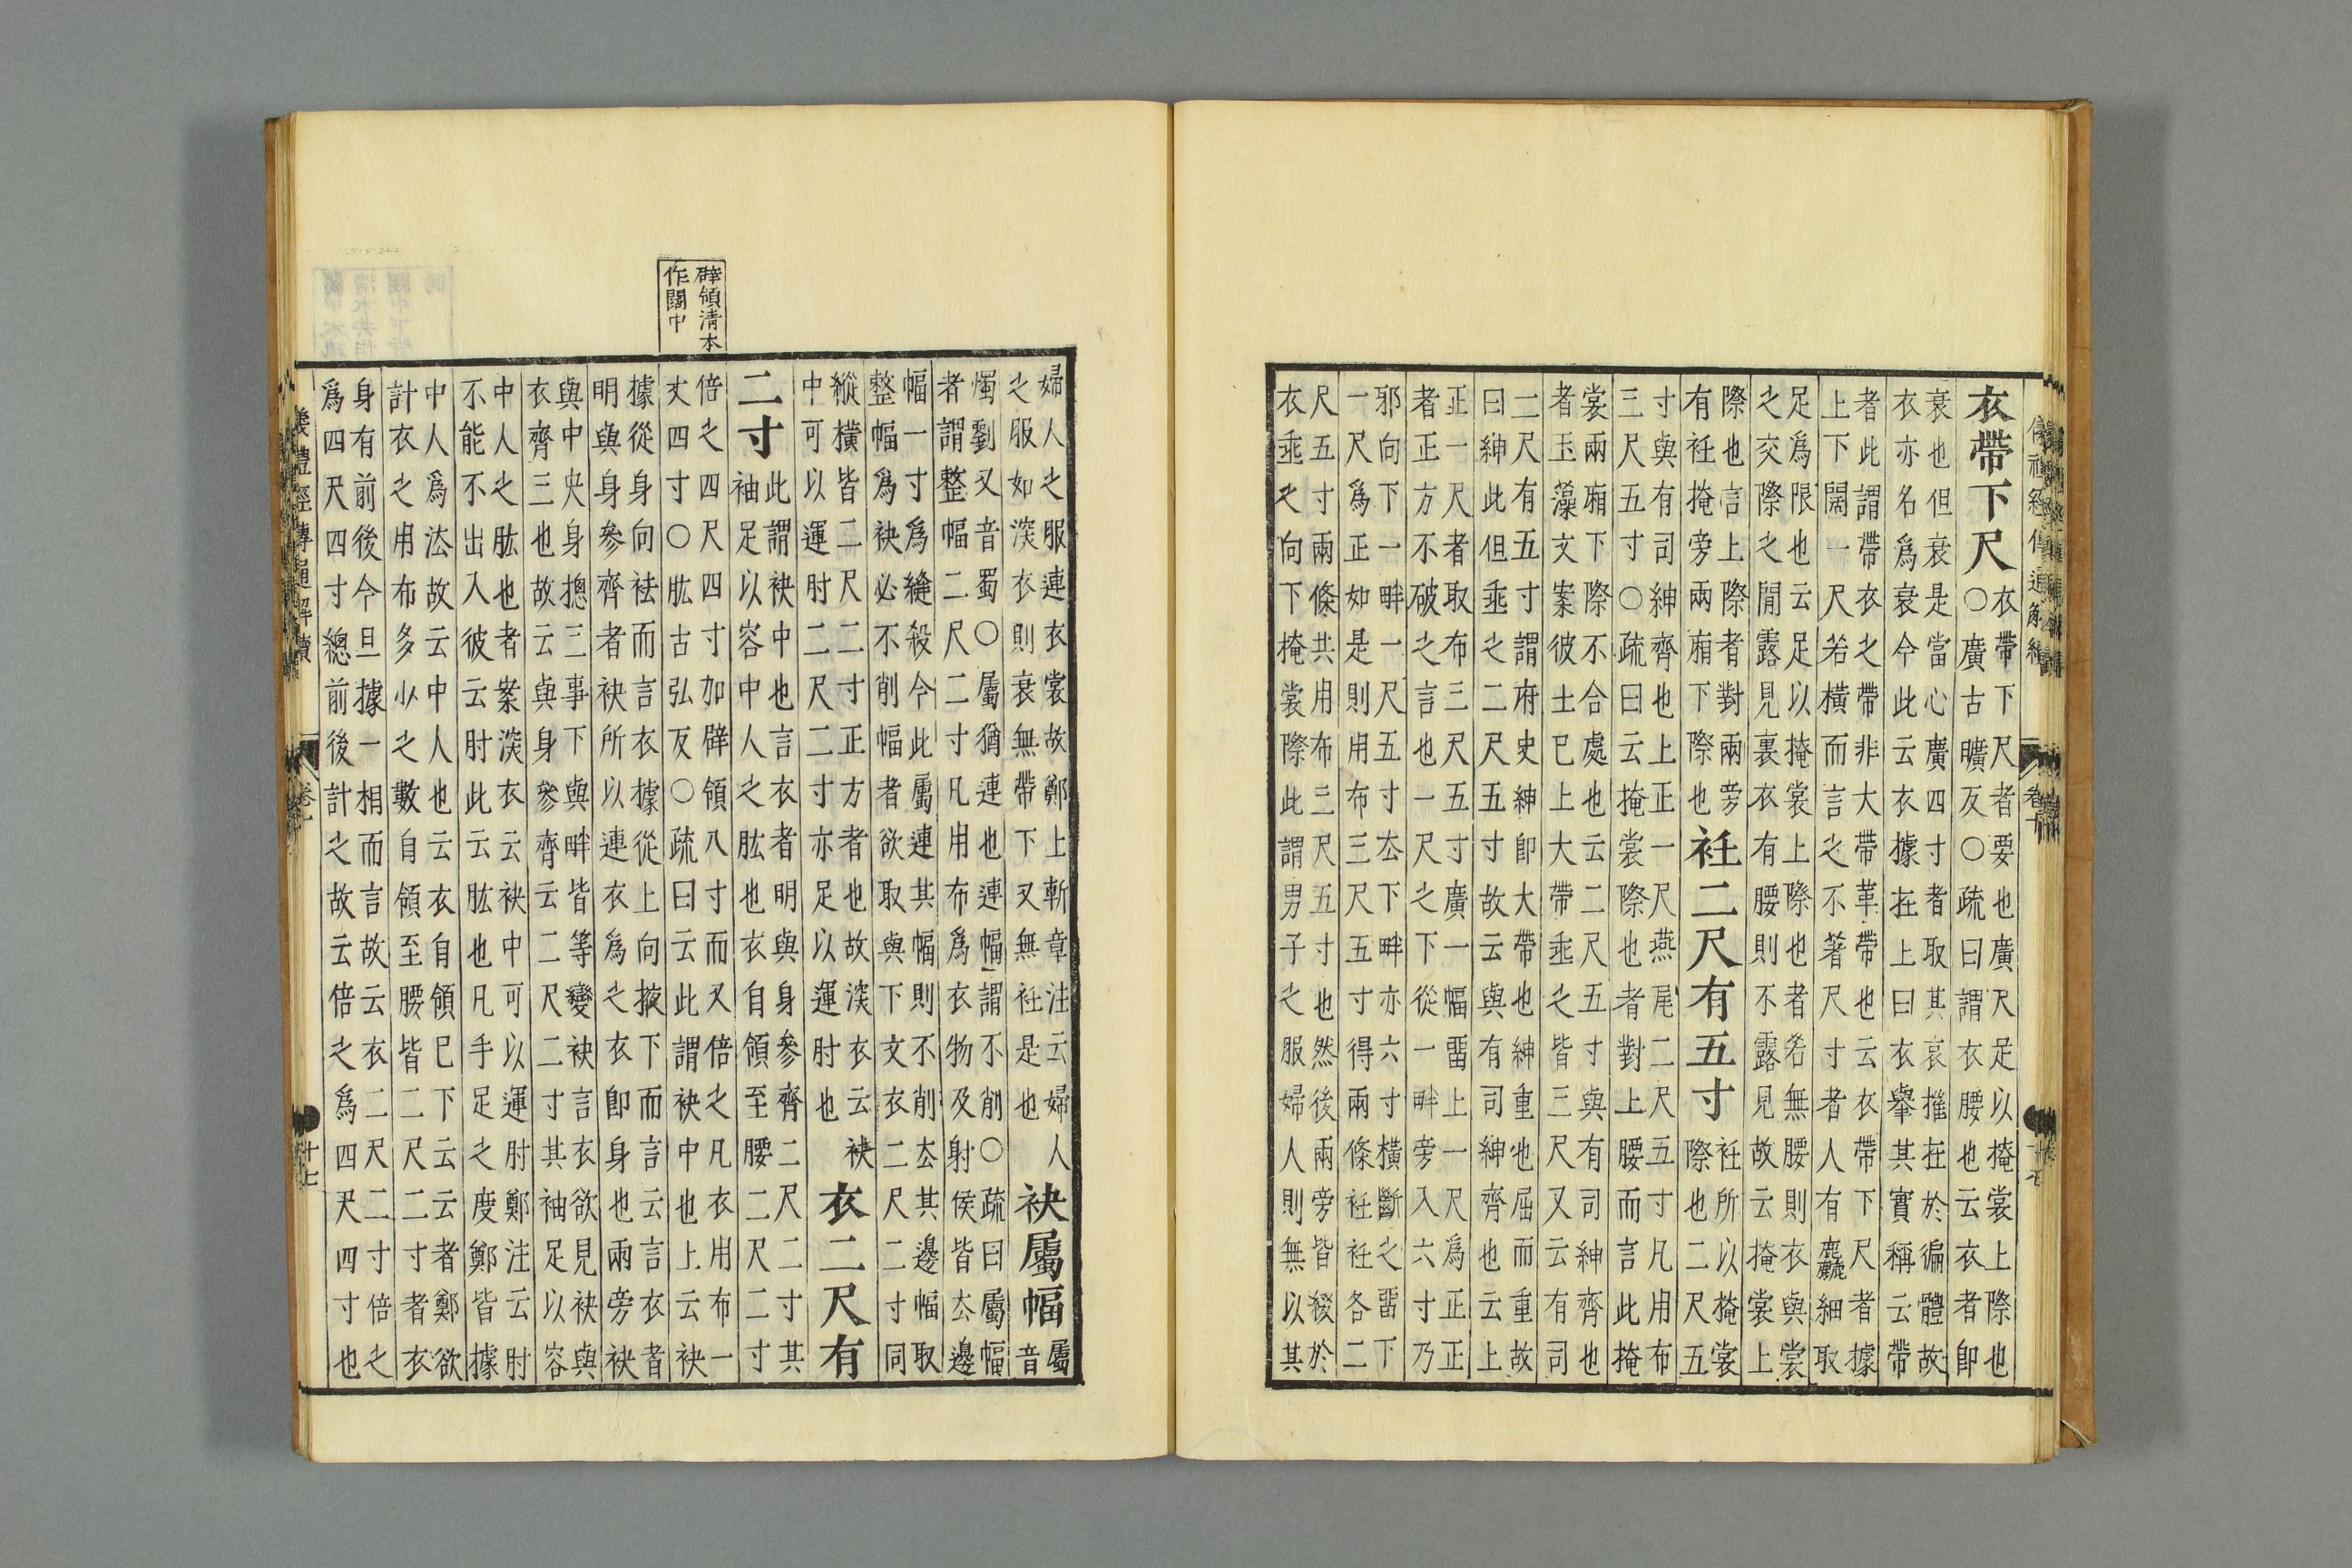 衣帶下尺
衣帶下尺者要也廣尺足以掩裳上際也
〇廣古曠反〇疏曰謂衣腰也云衣者即
衰也但衰是當心廣四寸者取其哀摧在於徧體故
衣亦名爲衰今此云衣據在上曰衣舉其實稱云帶
者此謂帶衣之帶非大帶革帶也云衣帶下尺者據
上下闊一尺若橫而言之不著尺寸者人有麤細取
足爲限也云足以掩裳上際也者若無腰則衣與裳
之交際之閒露見裏衣有腰則不露見故云掩裳上
際也言上際者對兩旁
有衽掩旁兩廂下際也
衽二尺有五寸
衽所以掩裳
際也二尺五
寸與有司紳齊也上正一尺燕尾二尺五寸凡用布
三尺五寸〇疏曰云掩裳際也者對上腰而言此掩
裳兩廂下際不合處也云二尺五寸與有司紳齊也
者玉藻文案彼士已上大帶垂之皆三尺又云有司
二尺有五寸謂府史紳即大帶也紳重也屈而重故
曰紳此但垂之二尺五寸故云與有司紳齊也云上
正一尺者取布三尺五寸廣一幅畱上一尺爲正正
者正方不破之言也一尺之下從一畔旁入六寸乃
邪向下一畔一尺五寸去下畔亦六寸橫斷之畱下
一尺爲正如是則用布三尺五寸得兩條衽衽各二
尺五寸兩條共用布三尺五寸也然後兩旁皆綴於
衣垂之向下掩裳際此謂男子之服婦人則無以其
婦人之服連衣裳故鄭上斬章注云婦人
之服如深衣則衰無帶下又無衽是也
袂屬幅
屬
音
燭劉又音蜀〇屬猶連也連幅謂不削〇疏曰屬幅
者謂整幅二尺二寸凡用布爲衣物及射侯皆去邊
幅一寸爲縫殺今此屬連其幅則不削去其邊幅取
整幅爲袂必不削幅者欲取與下文衣二尺二寸同
縱橫皆二尺二寸正方者也故深衣云袂
中可以運肘二尺二寸亦足以運肘也
衣二尺有
二寸
此謂袂中也言衣者明與身參齊二尺二寸其
袖足以容中人之肱也衣自領至腰二尺二寸
倍之四尺四寸加辟領八寸而又倍之凡衣用布一
丈四寸〇肱古弘反〇疏曰云此謂袂中也上云袂
據從身向袪而言衣據從上向掖下而言云言衣者
明與身參齊者袂所以連衣爲之衣即身也兩旁袂
與中央身揔三事下與畔皆等變袂言衣欲見袂與
衣齊三也故云與身參齊云二尺二寸其袖足以容
中人之肱也者案深衣云袂中可以運肘鄭注云肘
不能不出入彼云肘此云肱也凡手足之度鄭皆據
中人爲法故云中人也云衣自領已下云云者鄭欲
計衣之用布多少之數自領至腰皆二尺二寸者衣
身有前後今且據一相而言故云衣二尺二寸倍之
爲四尺四寸總前後計之故云倍之爲四尺四寸也
辟領清本
作闊中
儀禮經傳通解續
十七